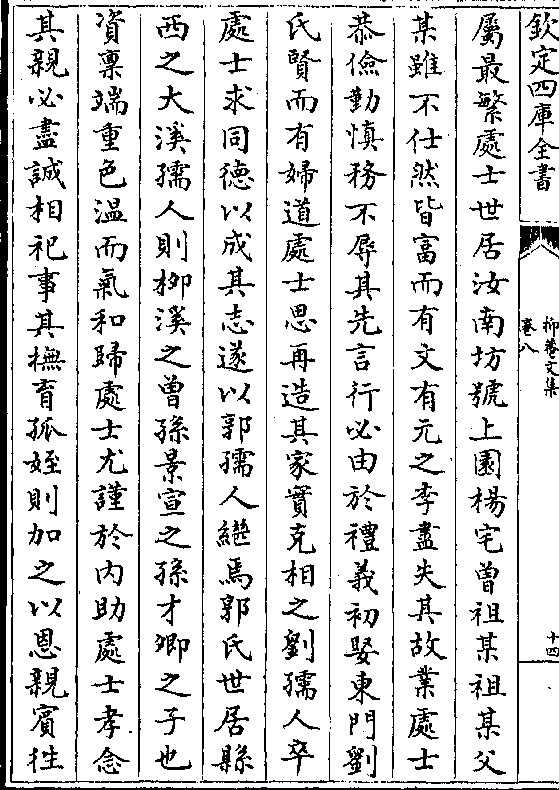 欽定四庫全書
抑菴文集
卷八
十四
屬最繁處士世居汝南坊號上園楊宅曽祖某祖某父
某雖不仕然皆富而有文有元之季盡失其故業處士
恭儉勤慎務不辱其先言行必由於禮義初娶東門劉
氏賢而有婦道處士思再造其家實克相之劉孺人卒
處士求同德以成其志遂以郭孺人繼焉郭氏世居縣
西之大溪孺人則柳溪之曾孫景宣之孫才卿之子也
資禀端重色温而氣和歸處士尤謹於内助處士孝念
其親必盡誠相祀事其撫育孤姪則加之以恩親賓徃